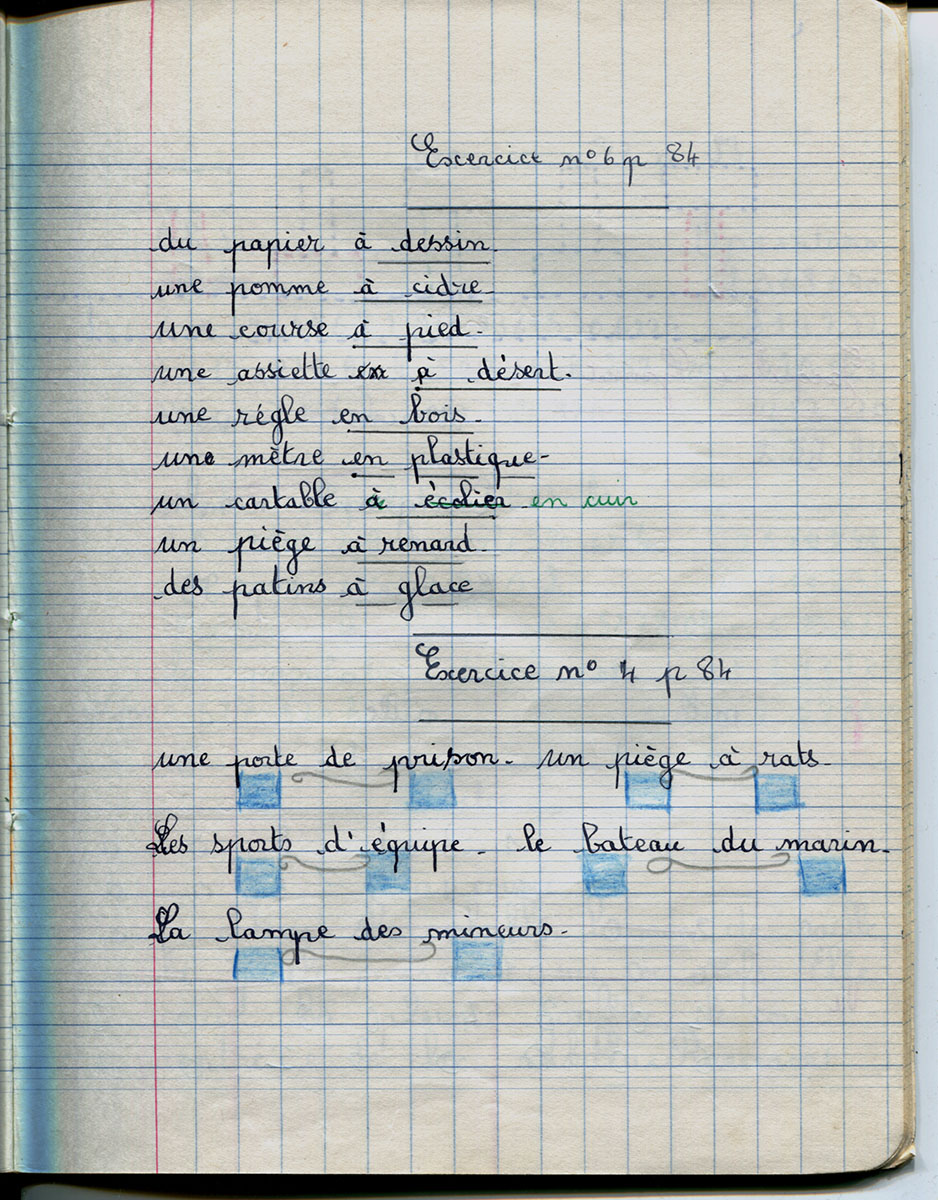 Excercice n° 6 p 84
du papier à dessin.
une pomme à cidre.
une course à pied.
une assiette à désert.
une régle en bois.
une mètre en plastique.
un cartable à écolier en cuir
un piège à renard.
des patins à glace
Exercice n° 4 p 84
une porte de prison. un piège à rats.
Les sports d'équipe. le bateau du marin.
La lampe des mineurs.